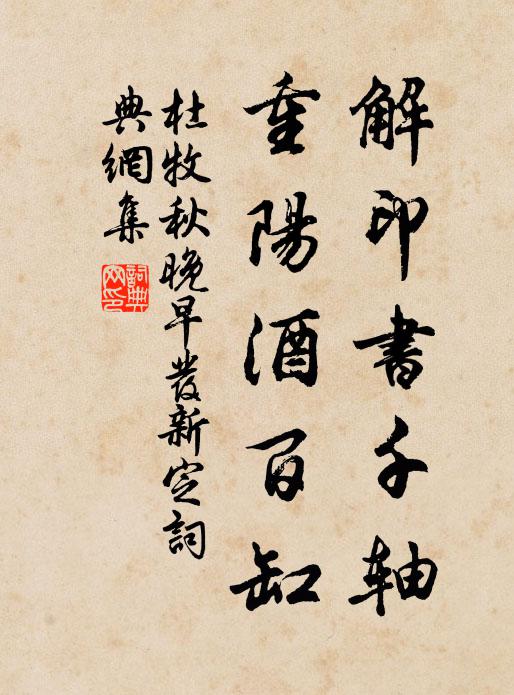 解印書千轴
重陽酒百缸
杜牧秋晚早發新定詞
典網集
詞典
网印